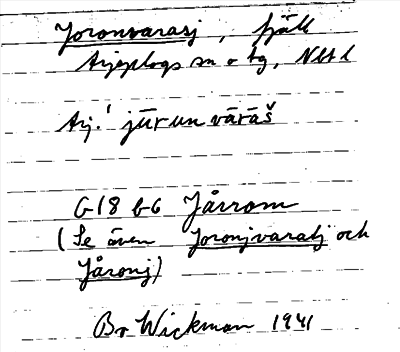 Joronvarasj, fjäll
Arjeplogs sn o tg, Nbtl
Arj.! jūrun vārāš
G18 b6 Jårrom
(Se även Joronjvaratj och
Jåronj)
Bo Wickman 1941